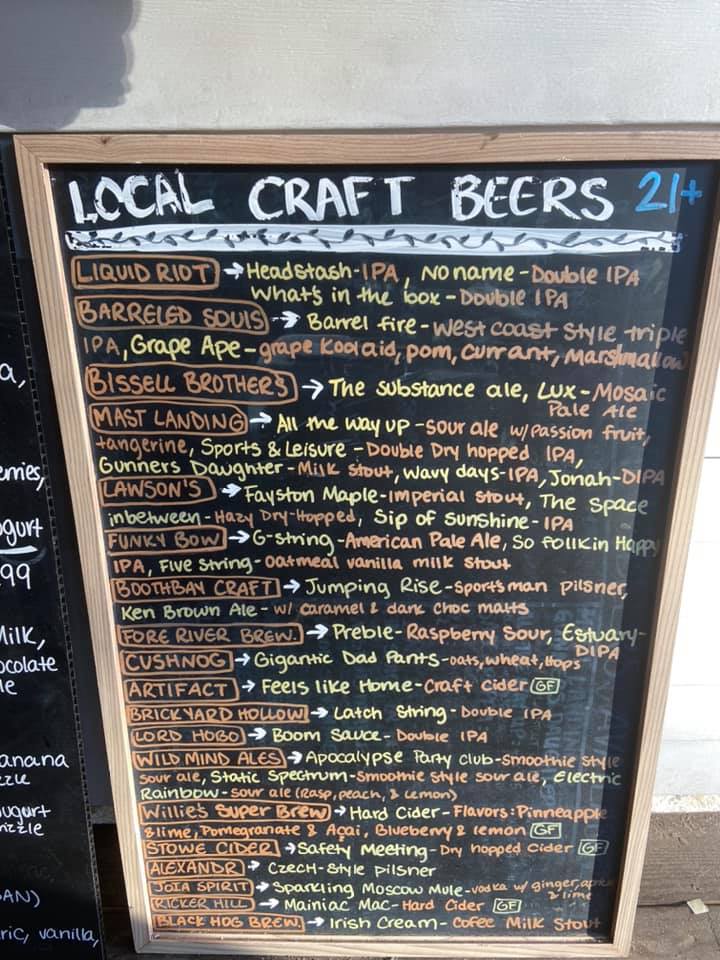 LOCAL CRAFT BEERS 21+
LIQUID RIOT → Headstash - IPA, No name - Double IPA
What's in the box - Double IPA
BARRELED SOULS → Barrel fire - West coast style triple
IPA, Grape Ape - grape Koolaid, pom, currant, Marshmallow
BISSELL BROTHERS → The substance ale, Lux - Mosaic
Pale Ale
MAST LANDING → All the way up - sour ale w/passion fruit,
tangerine, Sports & Leisure - Double Dry hopped IPA,
Gunners Daughter - Milk stout, wavy days - IPA, Jonah - DIPA
LAWSON'S → Fayston Maple - Imperial stout, The Space
inbetween - Hazy Dry-Hopped, Sip of Sunshine - IPA
FUNKY BOW → G-string - American Pale Ale, So folkin Happy
IPA, Five String - Oatmeal vanilla milk stout
BOOTHBAY CRAFT → Jumping Rise - sportsman pilsner,
Ken Brown Ale - w/ caramel & dark choc malts
FORE RIVER BREW. → Preble - Raspberry Sour, Estuary -
DIPA
CUSHNOG → Gigantic Dad Pants - oats, wheat, Hops
ARTIFACT → Feels like Home - Craft cider GF
BRICKYARD HOLLOW → Latch String - Double IPA
LORD HOBO → Boom Sauce - Double IPA
WILD MIND ALES → Apocalypse Party club - Smoothie style
sour ale, Static Spectrum - Smoothie style sour ale, Electric
Rainbow - sour ale (rasp, peach, & lemon)
Willie's Super Brew → Hard Cider - Flavors: Pinneapple
& lime, Pomegranate & Açai, Blueberry & lemon GF
STOWE CIDER → Safety Meeting - Dry hopped cider GF
ALEXANDR → Czech-style pilsner
JOIA SPIRIT → Sparkling Moscow Mule - vodka w/ ginger,
& lime
RICKER HILL → Mainiac Mac - Hard Cider GF
BLACK HOG BREW. → Irish Cream - Cofee Milk Stout
a,
erries,
ogurt
99
Milk,
ocolate
le
anana
zzle
ugurt
rizzle
AN)
ric, vanilla,